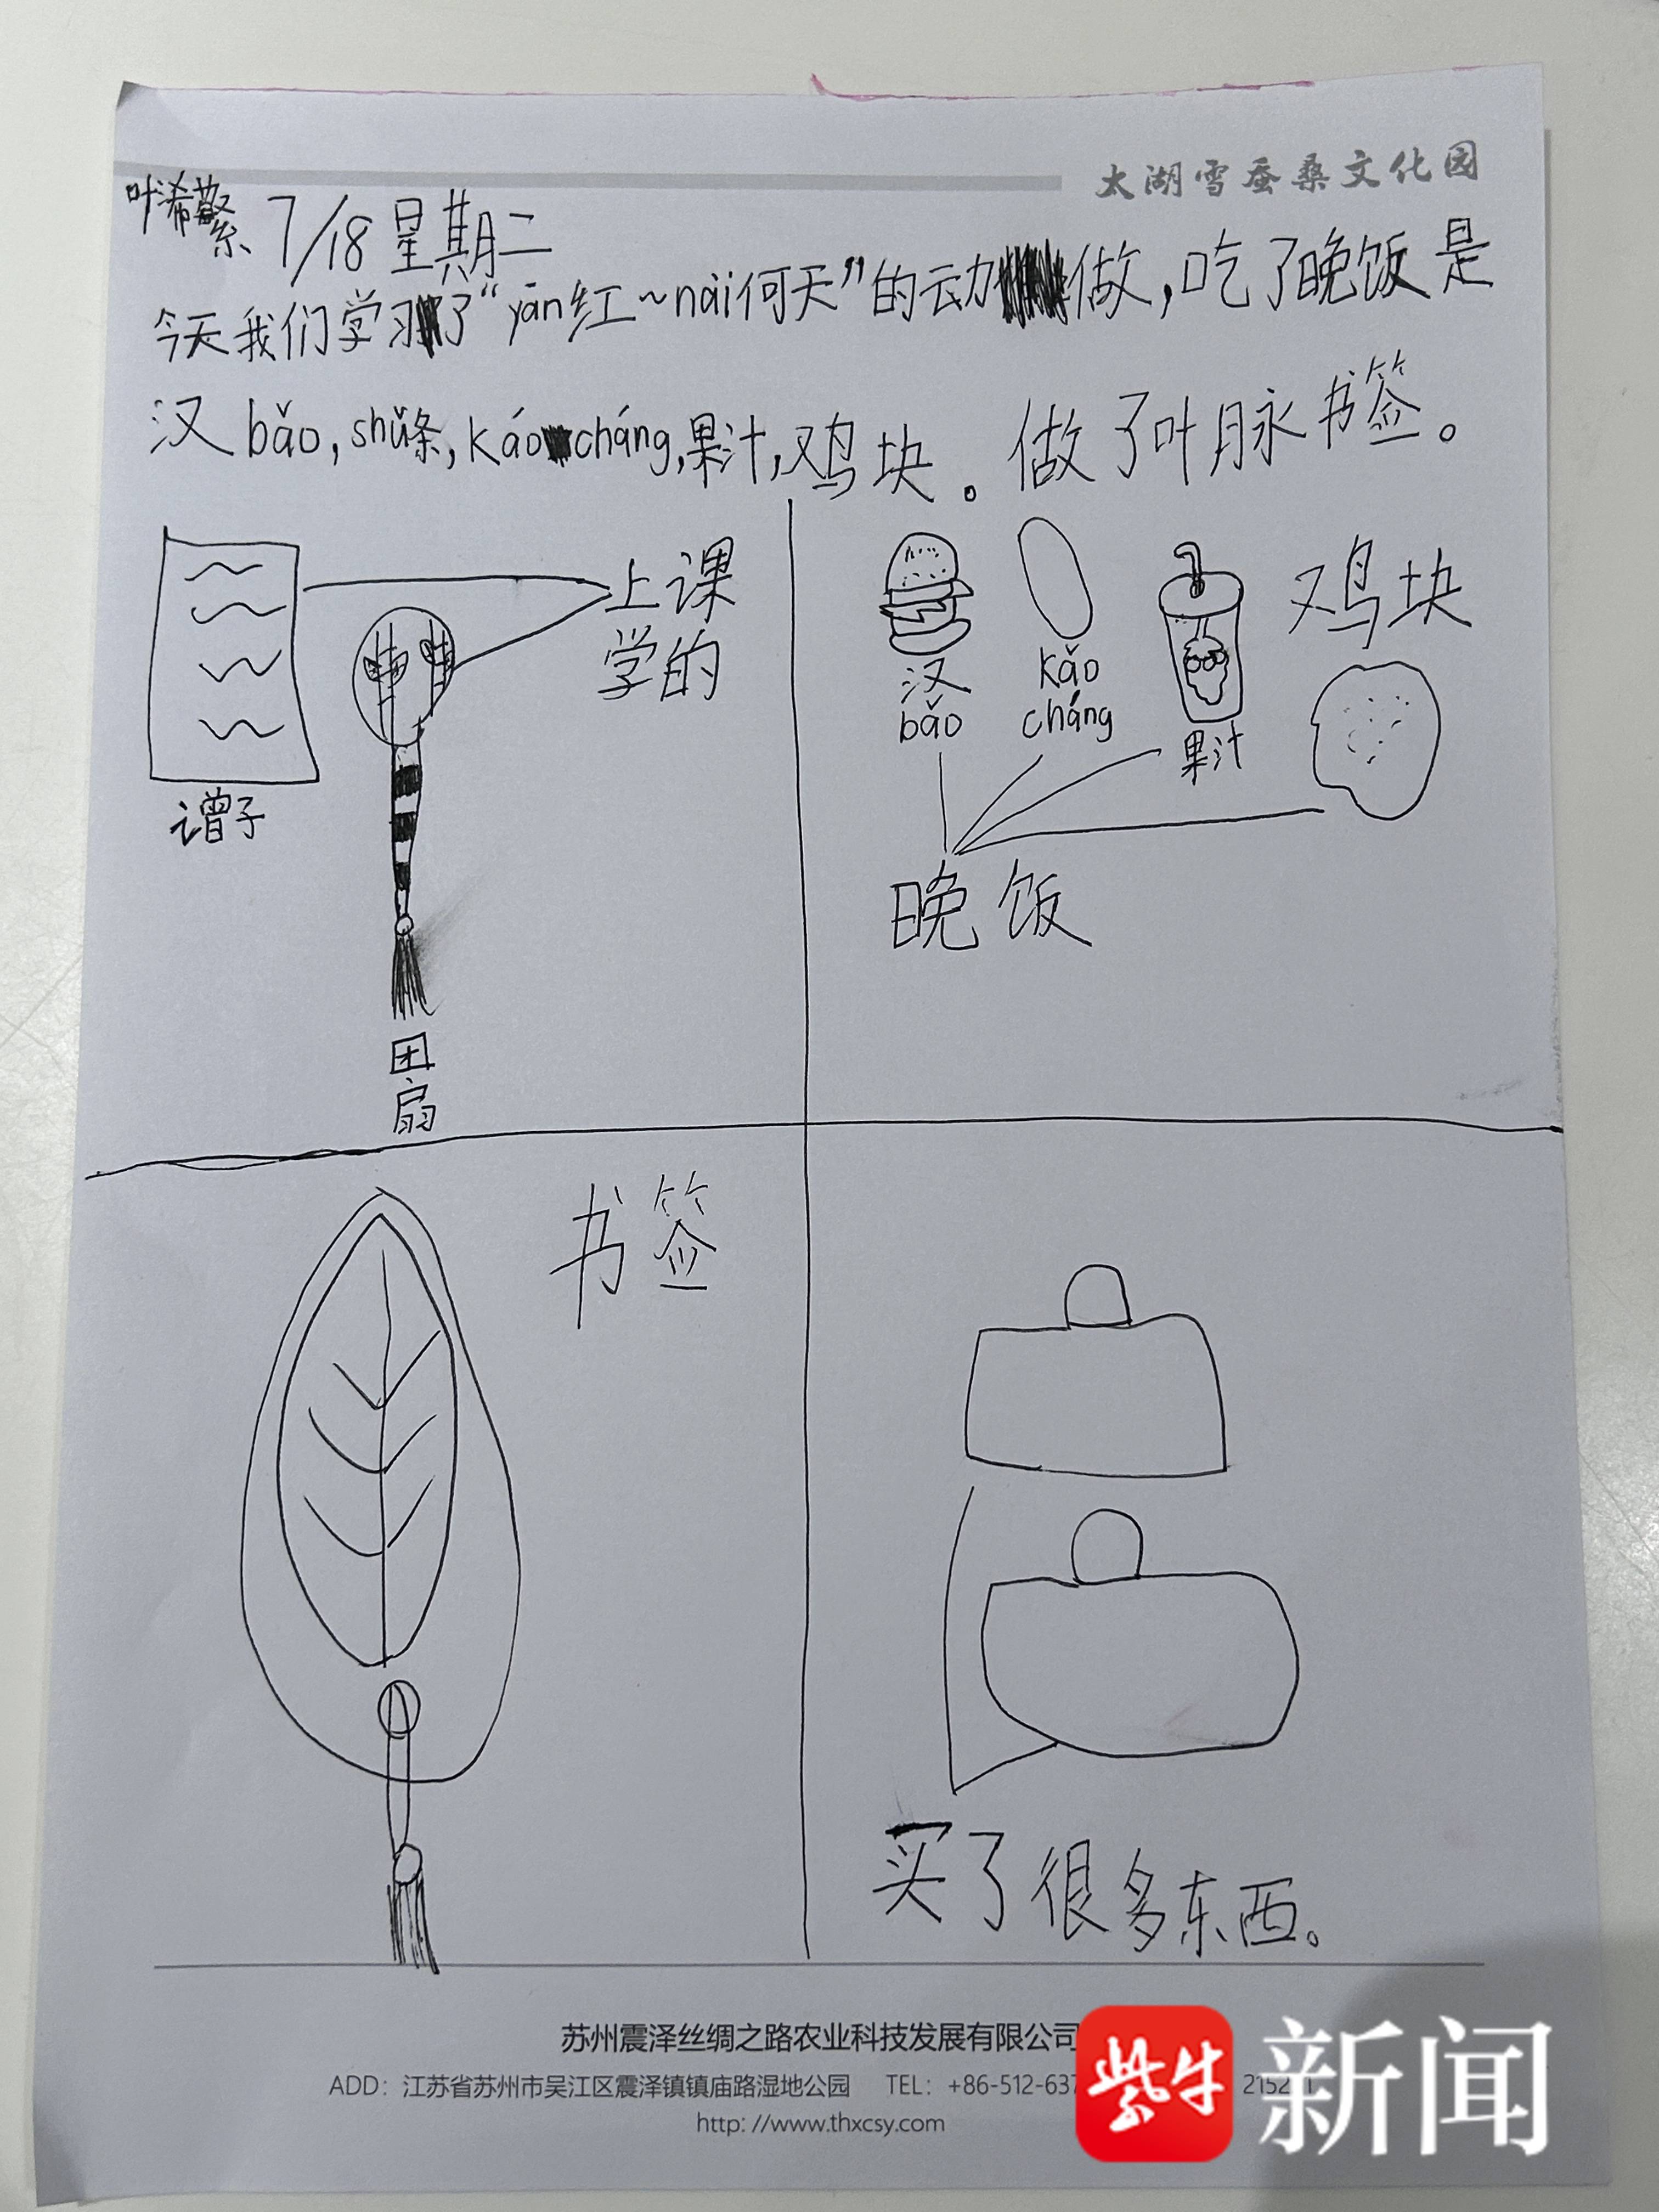 太湖雪蚕桑文化园
叶浠蘩 7/18 星期二
今天我们学习了“yān红~nài何天”的动做,吃了晚饭是
汉bǎo,shǔ条,káocháng,果汁,鸡块。做了叶脉书签。
上课
学的
谱子
团
扇
汉
bǎo
kǎo
cháng
果汁
鸡块
晚饭
书签
买了很多东西。
苏州震泽丝绸之路农业科技发展有限公司
ADD: 江苏省苏州市吴江区震泽镇镇庙路湿地公园 TEL: +86-512-637
http: //www.thxcsy.com
紫牛
新闻